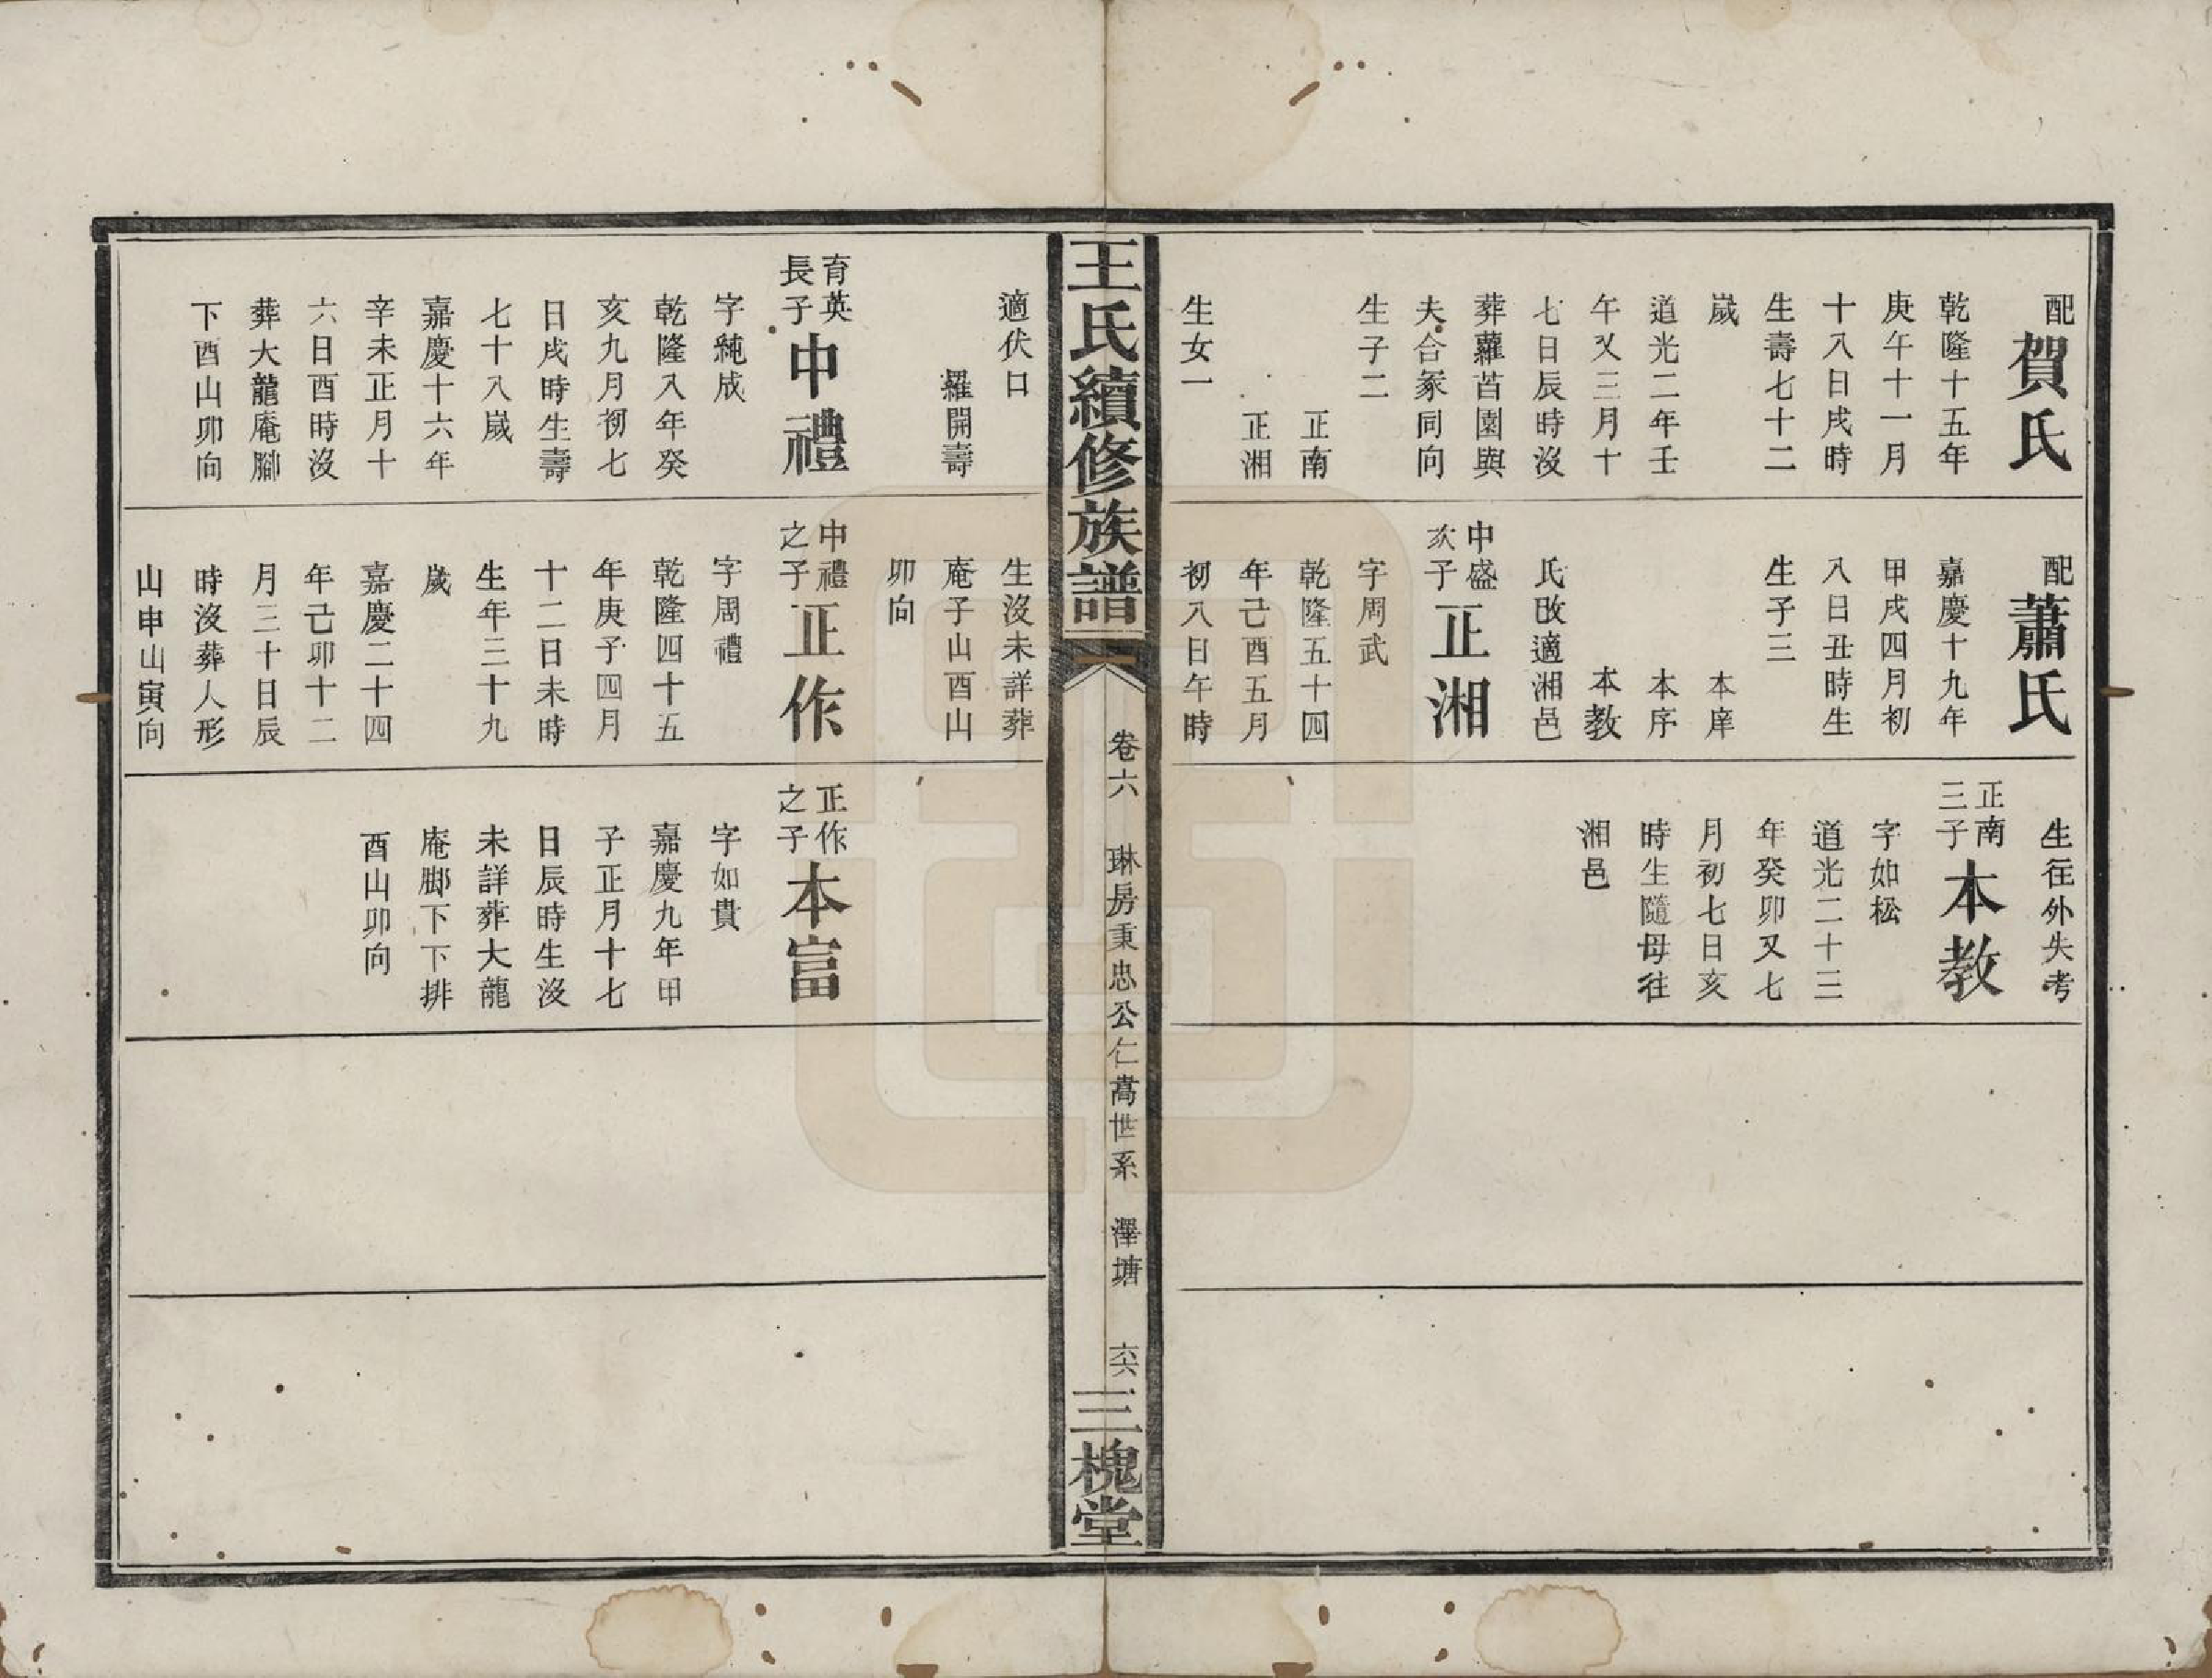 配賀氏
乾隆十五年
庚午十一月
十八日戌時
生壽七十二
嵗
道光二年壬
午又三月十
七日辰時沒
葬蘿苩園與
夫合冢同向
生子二
正南
正湘
生女一
配蕭氏
嘉慶十九年
甲戌四月初
八日丑時生
生子三
本庠
本序
本教
氏改適湘邑
中盛
次子
正湘
字周武
乾隆五十四
年己酉五月
初八日午時
生徃外失考
正南
三子
本教
字如松
道光二十三
年癸卯又七
月初七日亥
時生隨母徃
湘邑
王氏續修族譜
卷六 琳房秉忠公仁蒿世系 澤塘 六六
三槐堂
適伏口
羅開壽
育英
長子
中禮
字純成
乾隆八年癸
亥九月初七
日戌時生壽
七十八嵗
嘉慶十六年
辛未正月十
六日酉時沒
葬大龍庵腳
下酉山卯向
生沒未詳葬
庵子山酉山
卯向
中禮
之子
正作
字周禮
乾隆四十五
年庚子四月
十二日未時
生年三十九
嵗
嘉慶二十四
年己卯十二
月三十日辰
時沒葬人形
山申山寅向
正作
之子
本富
字如貴
嘉慶九年甲
子正月十七
日辰時生沒
未詳葬大龍
庵脚下下排
酉山卯向